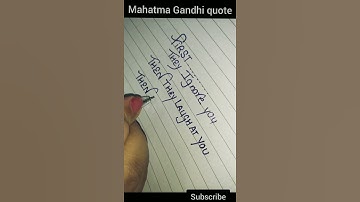 Mahatma Gandhi quote
FIRST ........
THEY Ignore you
THEN THEY LAUGH AT YOU
THEN
Subscribe